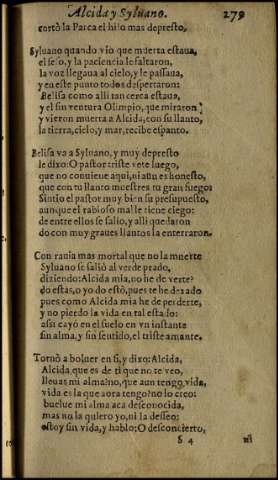 Alcida y Syluano. 279
cortò la Parca el hilo mas depresto.
Syluano quando vio que muerta estaua,
el seso, y la paciencia le faltaron,
la voz llegaua al cielo, y le passaua,
y en este punto todos despertaron:
Belisa como alli tan cerca estaua,
y el sin ventura Olimpio, que miraron
y vieron muerta a Alcida, con su llanto,
la tierra, cielo, y mar, recibe espanto.
Belisa va a Syluano, y muy depresto
le dixo: O pastor triste vete luego,
que no conuiene aqui, ni aũn es honesto,
que con tu llanto muestres tu gran fuego:
Sintio el pastor muy bien su presupuesto,
aunque el rabioso mal le tiene ciego:
de entre ellos se salio, y alli quedaron
do con muy graues llantos la enterraron.
Con rauia mas mortal que no la muerte
Syluano se saliò al verde prado,
diziendo: Alcida mia, no he de verte?
do estas, o yo do estò, pues te he dexado
pues como Alcida mia he de perderte,
y no pierdo la vida en tal estado:
assi cayò en el suelo en vn instante
sin alma, y sin sentido, el triste amante.
Tornò a boluer en si, y dixo: Alcida,
Alcida que es de ti que no te veo,
lleuas mi alma? no, que aun tengo vida,
vida es la que aora tengo? no lo creo:
buelue mi alma aca desconocida,
mas no la quiero yo, ni la desseo:
estoy sin vida, y hablo: O desconcierto,
S 4 ni